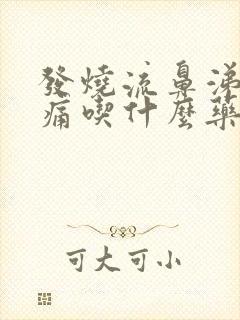 發燒流鼻涕
痛喫什麼藥
可大可小